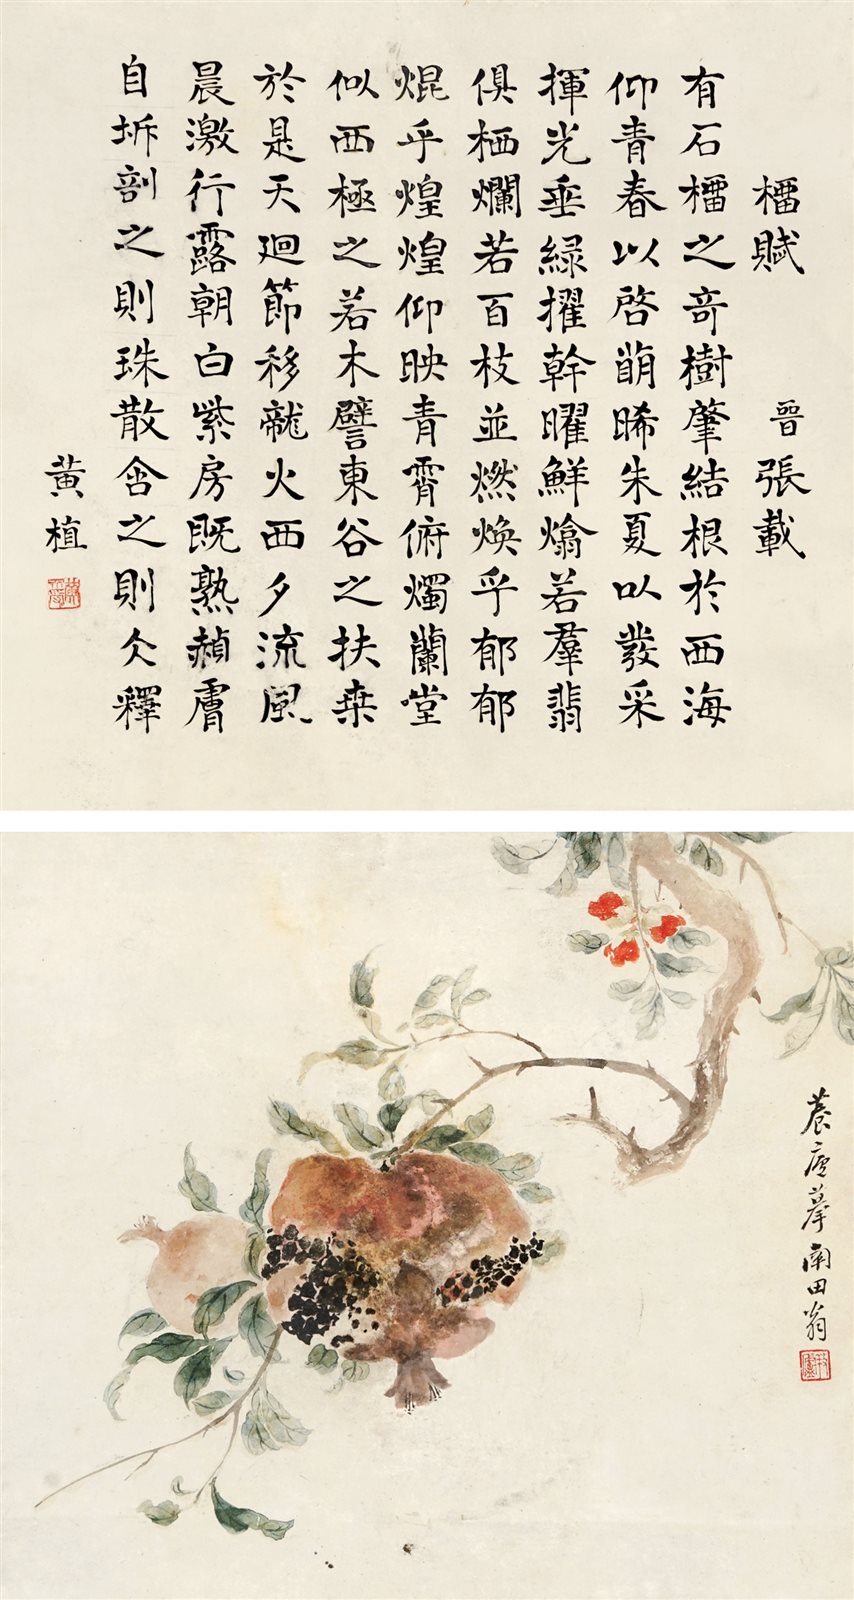 橊賦 晉張載
有石橊之奇樹肇結根於西海
仰青春以啓萌晞朱夏以發采
揮光垂綠擢幹曜鮮熻若羣翡
俱栖爛若百枝並燃煥乎郁郁
焜乎煌煌仰映青霄俯燭蘭堂
似西極之若木譬東谷之扶桒
於是天廻節移龍火西夕流風
晨激行露朝白紫房既熟赬膚
自坼剖之則珠散含之則仌釋
黃植
養廬摹南田翁